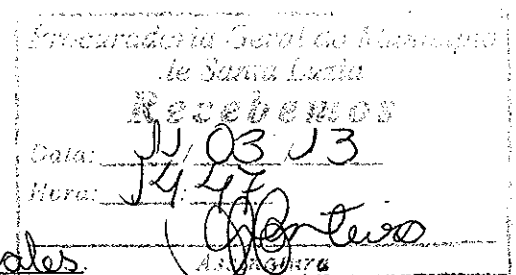 Procuradoria Geral do Município
de Santa Luzia
Recebemos
Data: 11/03/13
Hora: 14:47
Monteiro
Assinatura